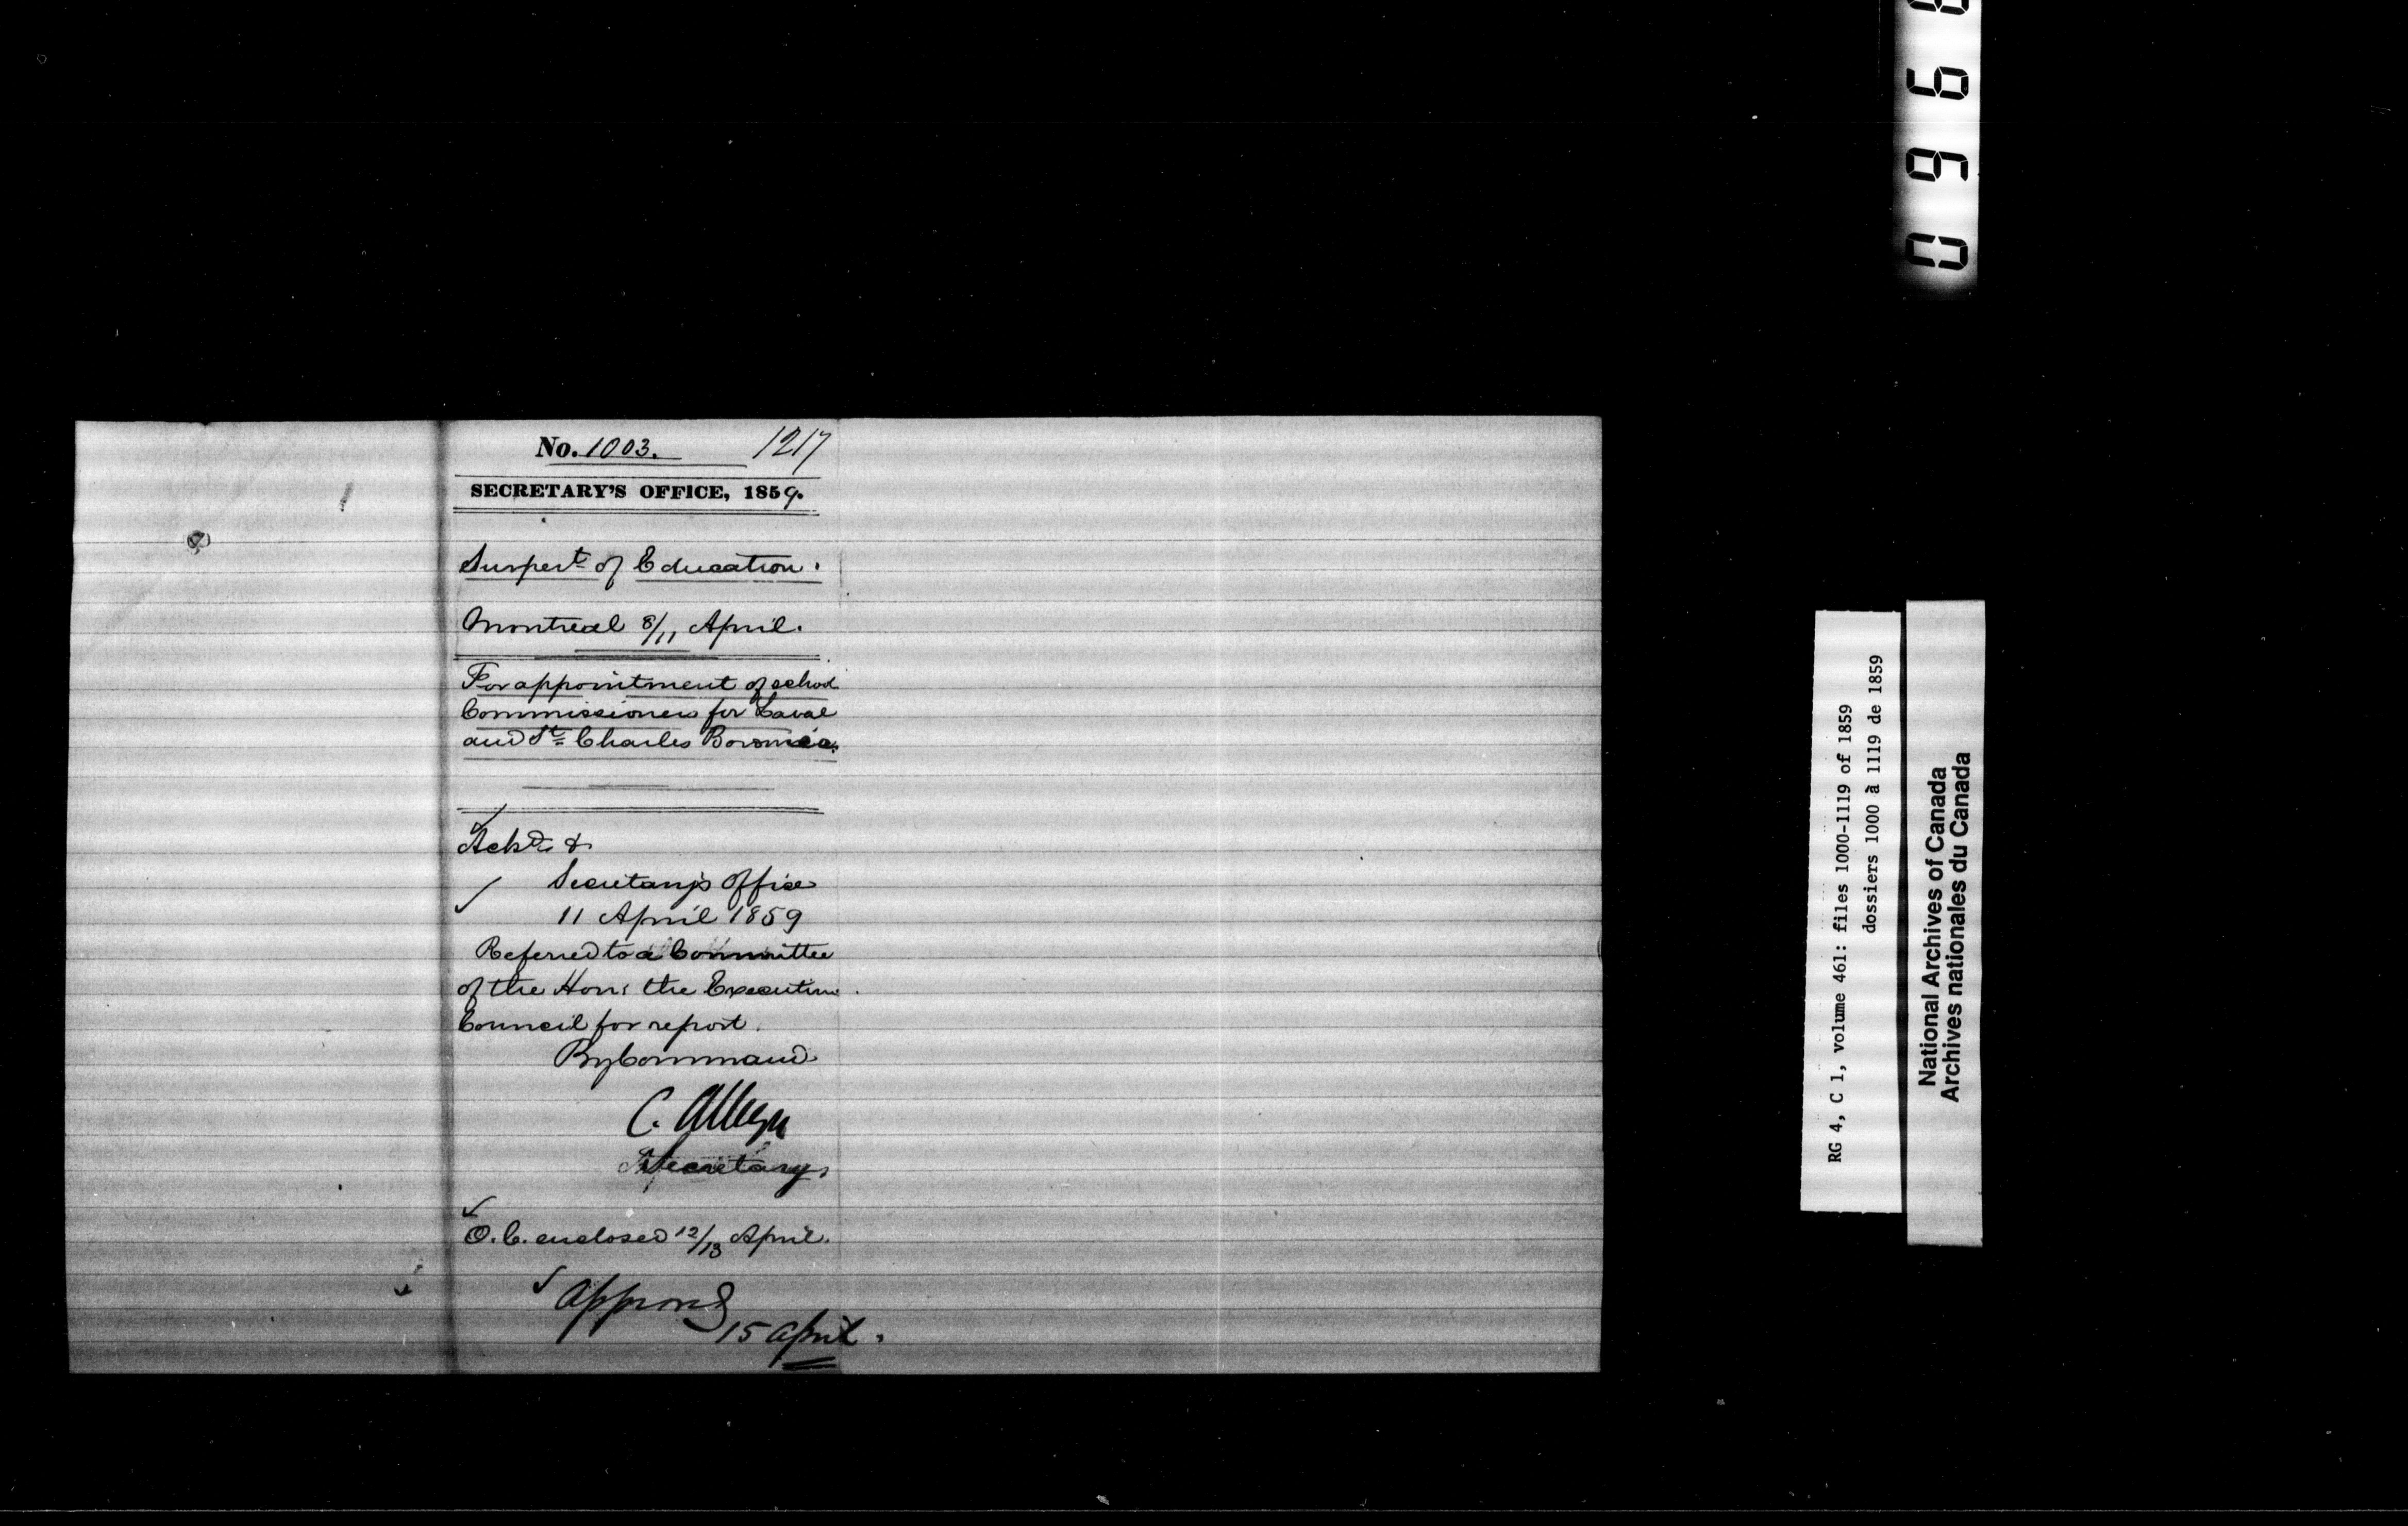 No. 1003. 1217
SECRETARY'S OFFICE, 1859.
Supert of Education.
Montreal 8/11 April.
For appointment of school
Commissioners for Laval
and St Charles Boromée.
Ackd &
Secretary's Office
11 April 1859
Referred to a Committee
of the Hon: the Executive
Council for report.
By Command
C. Alleyn
Secretary
O.C. enclosed 12/13 April.
Approved
15 April.
096
RG 4, C 1, volume 461: files 1000-1119 of 1859
dossiers 1000 à 1119 de 1859
National Archives of Canada
Archives nationales du Canada